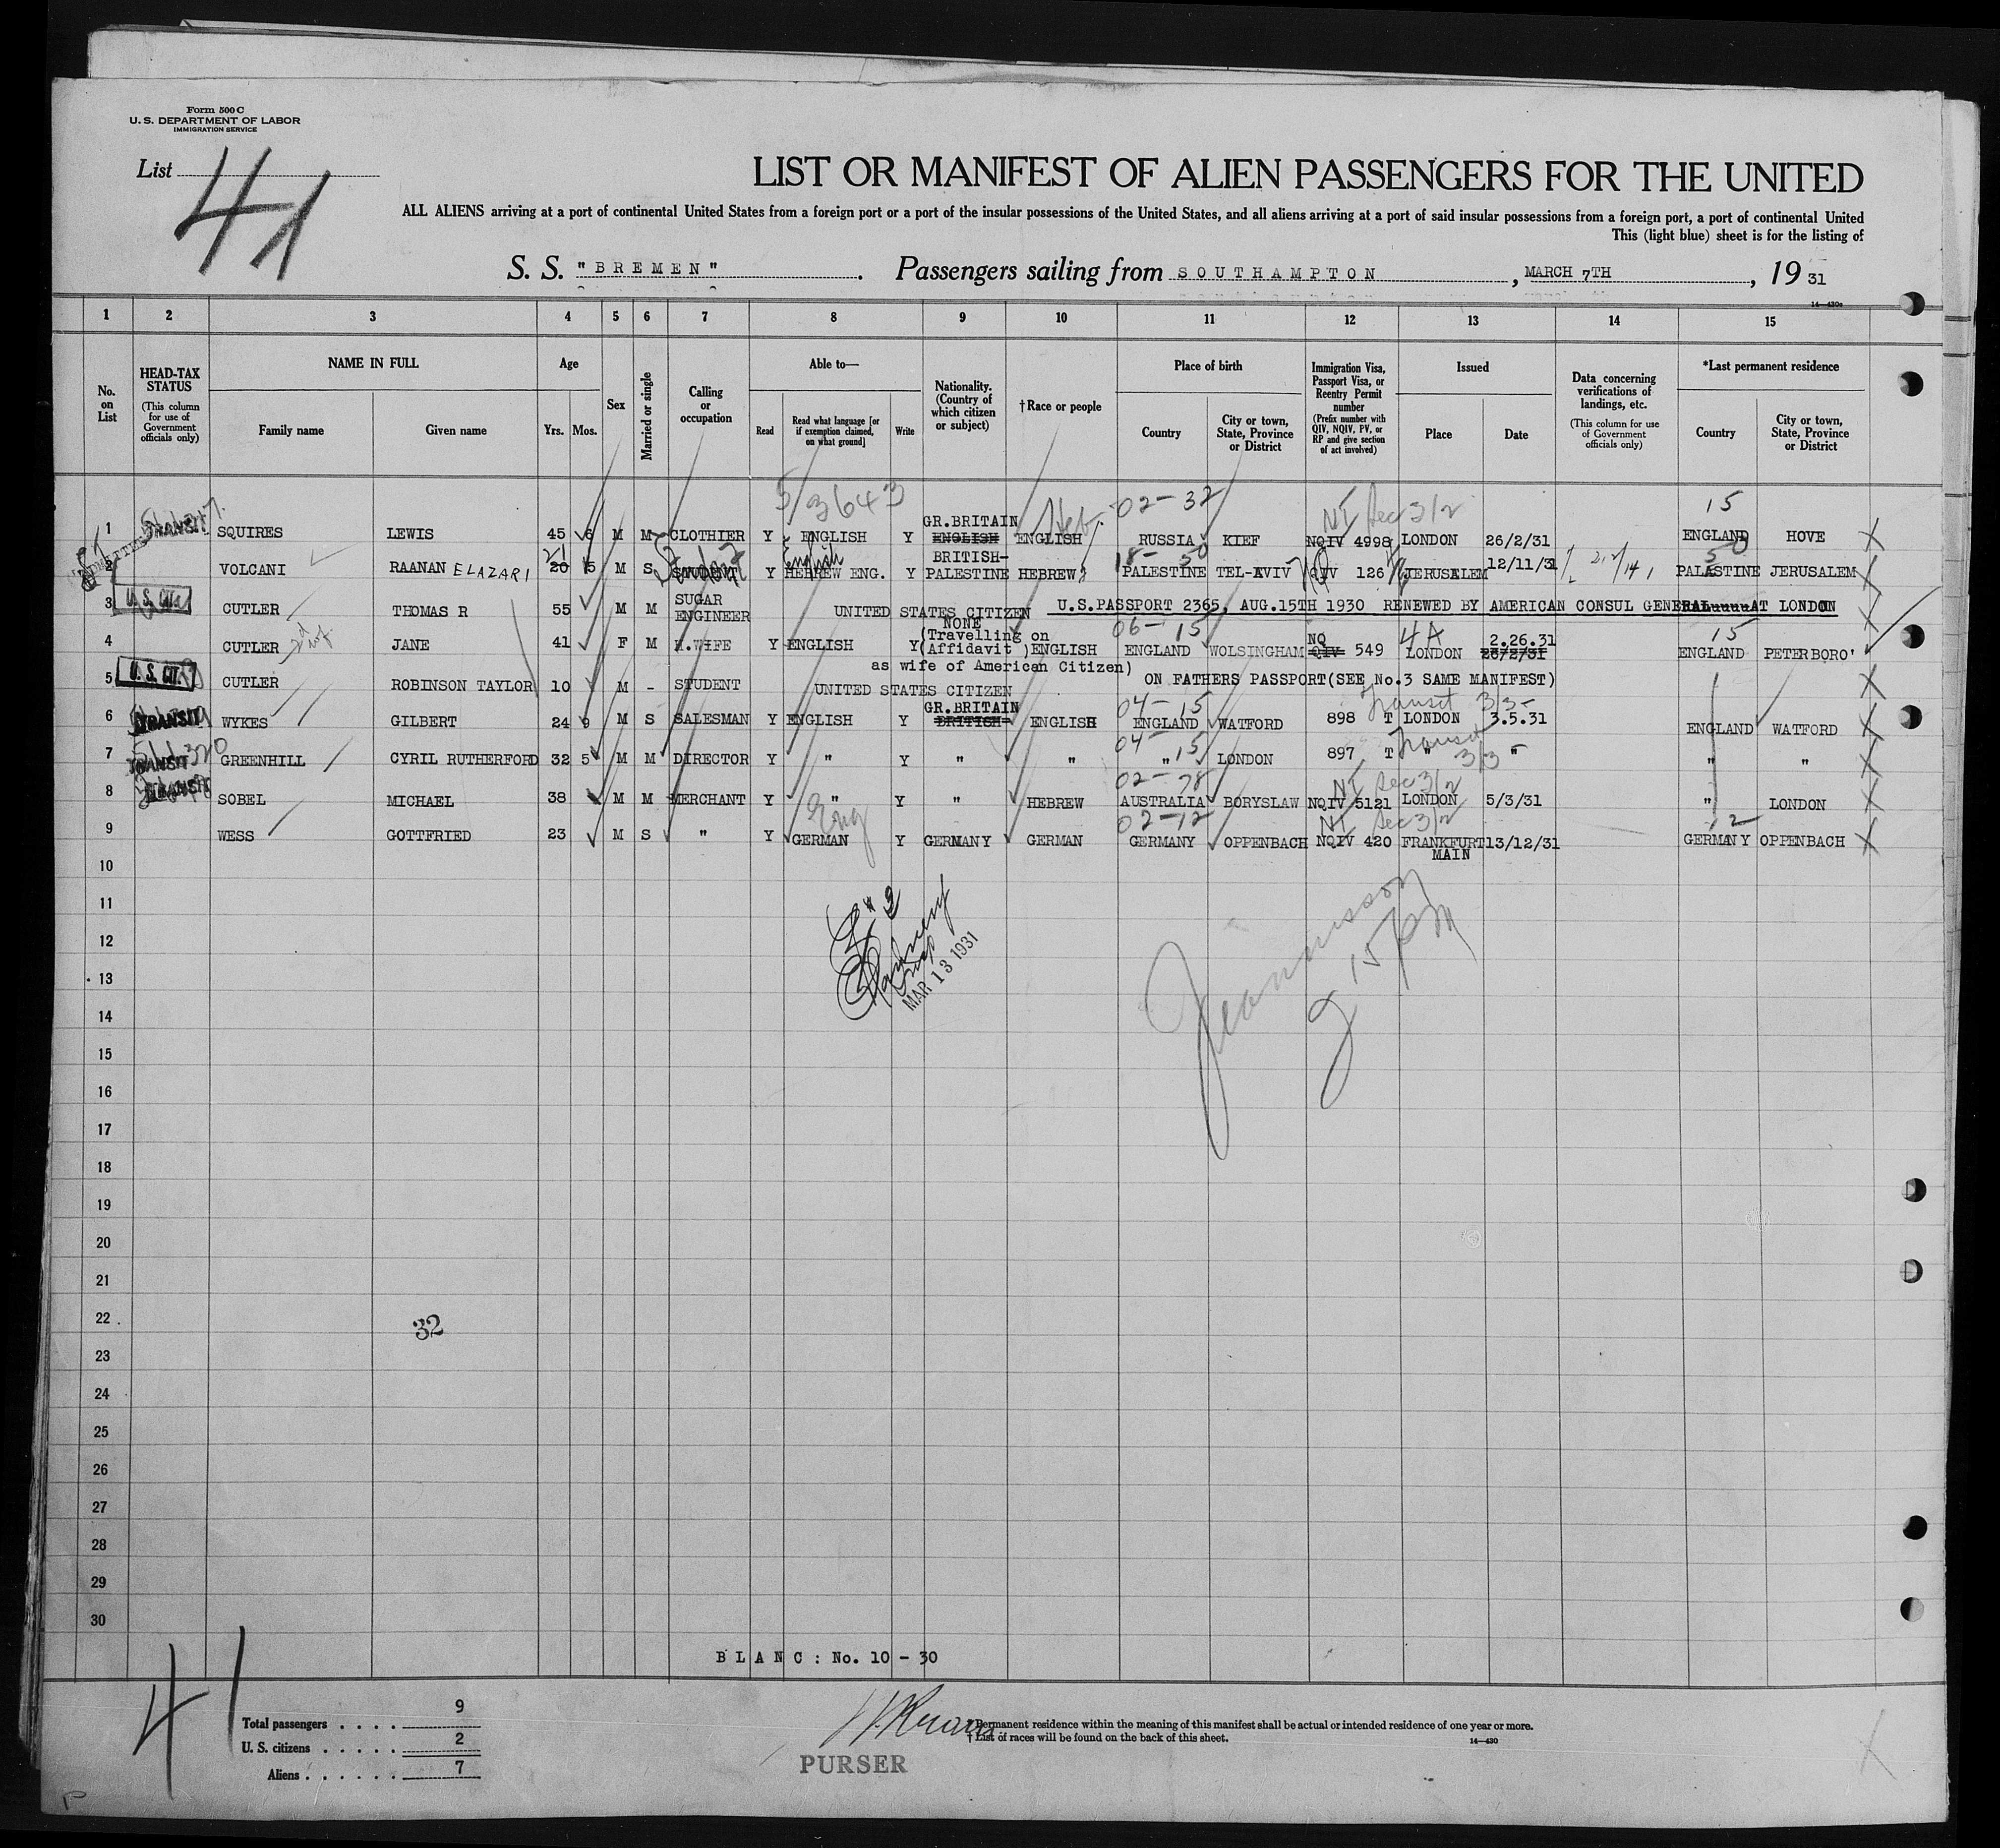 Form 500 C
U. S. DEPARTMENT OF LABOR
IMMIGRATION SERVICE
List 41
LIST OR MANIFEST OF ALIEN PASSENGERS FOR THE UNITED
ALL ALIENS arriving at a port of continental United States from a foreign port or a port of the insular possessions of the United States, and all aliens arriving at a port of said insular possessions from a foreign port, a port of continental United
This (light blue) sheet is for the listing of
S. S. "BREMEN". Passengers sailing from SOUTHAMPTON, MARCH 7TH, 1931
1 2 3 4 5 6 7 8 9 10 11 12 13 14 15
No. on List
HEAD-TAX STATUS (This column for use of Government officials only)
NAME IN FULL
Family name
Given name
Age
Yrs. Mos.
Sex
Married or single
Calling or occupation
Able to—
Read
Read what language [or if exemption claimed, on what ground]
Write
Nationality. (Country of which citizen or subject)
†Race or people
Place of birth
Country
City or town, State, Province or District
Immigration Visa, Passport Visa, or Reentry Permit number (Prefix number with QIV, NQIV, PV, or RP and give section of act involved)
Issued
Place
Date
Data concerning verifications of landings, etc. (This column for use of Government officials only)
*Last permanent residence
Country
City or town, State, Province or District
5/3643 02-32 NT Sec 3/2 15
1 TRANSIT SQUIRES LEWIS 45 6 M M CLOTHIER Y ENGLISH Y GR.BRITAIN ENGLISH ENGLISH Heb. RUSSIA KIEF NQIV 4998 LONDON 26/2/31 ENGLAND HOVE
2 VOLCANI RAANAN ELAZARI 20 21 5 M S STUDENT Student Y HEBREW ENG. English Y BRITISH-PALESTINE HEBREW 18-50 PALESTINE TEL-AVIV QIV 126 JERUSALEM 12/11/31 50 PALASTINE JERUSALEM
3 U. S. CIT. CUTLER THOMAS R 55 M M SUGAR ENGINEER UNITED STATES CITIZEN U.S.PASSPORT 2365, AUG.15TH 1930 RENEWED BY AMERICAN CONSUL GENERAL AT LONDON
4 CUTLER JANE 41 F M H.WIFE Y ENGLISH Y NONE (Travelling on Affidavit ) ENGLISH 06-15 ENGLAND WOLSINGHAM NQ QIV 549 4A LONDON 2.26.31 26/2/31 15 ENGLAND PETERBORO'
as wife of American Citizen)
5 U. S. CIT. CUTLER ROBINSON TAYLOR 10 M - STUDENT UNITED STATES CITIZEN ON FATHERS PASSPORT(SEE No.3 SAME MANIFEST)
6 TRANSIT WYKES GILBERT 24 9 M S SALESMAN Y ENGLISH Y GR.BRITAIN BRITISH ENGLISH 04-15 ENGLAND WATFORD 898 T Transit 3/3 LONDON 3.5.31 ENGLAND WATFORD
7 TRANSIT GREENHILL CYRIL RUTHERFORD 32 5 M M DIRECTOR Y " Y " " 04-15 " LONDON 897 T Transit 3/3 " " " "
8 TRANSIT SOBEL MICHAEL 38 M M MERCHANT Y " Y " HEBREW 02-78 AUSTRALIA BORYSLAW NT Sec 3/2 NQIV 5121 LONDON 5/3/31 " LONDON
9 WESS GOTTFRIED 23 M S " Y GERMAN Eng Y GERMANY GERMAN 02-12 GERMANY OPPENBACH NT Sec 3/2 NQIV 420 FRANKFURT MAIN 13/12/31 12 GERMANY OPPENBACH
10
11
12
13
14
15
16
17
18
19
20
21
22
23
24
25
26
27
28
29
30
MAR 13 1931
32
BLANC: No. 10 - 30
41
Total passengers 9
U. S. citizens 2
Aliens 7
PURSER
* Permanent residence within the meaning of this manifest shall be actual or intended residence of one year or more.
† List of races will be found on the back of this sheet.
14—430